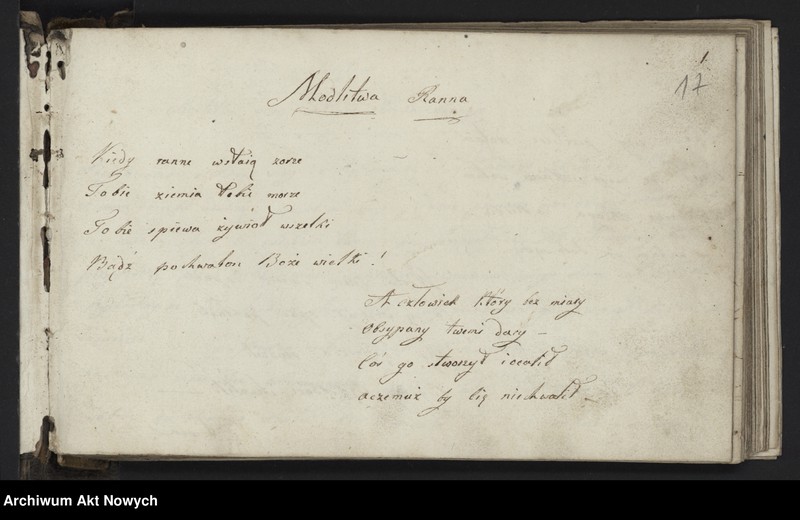 1
17
Modlitwa Ranna
Kiedy ranne wstaią zorze
Tobie ziemia tobie morze
Tobie spiewa żywioł wszelki
Bądź pochwalon Boże wielki!
A człowiek który bez miary
Obsypany twemi dary –
Coś go stworzył i ocalił
aczemuż by Cię niechwalił –
Archiwum Akt Nowych